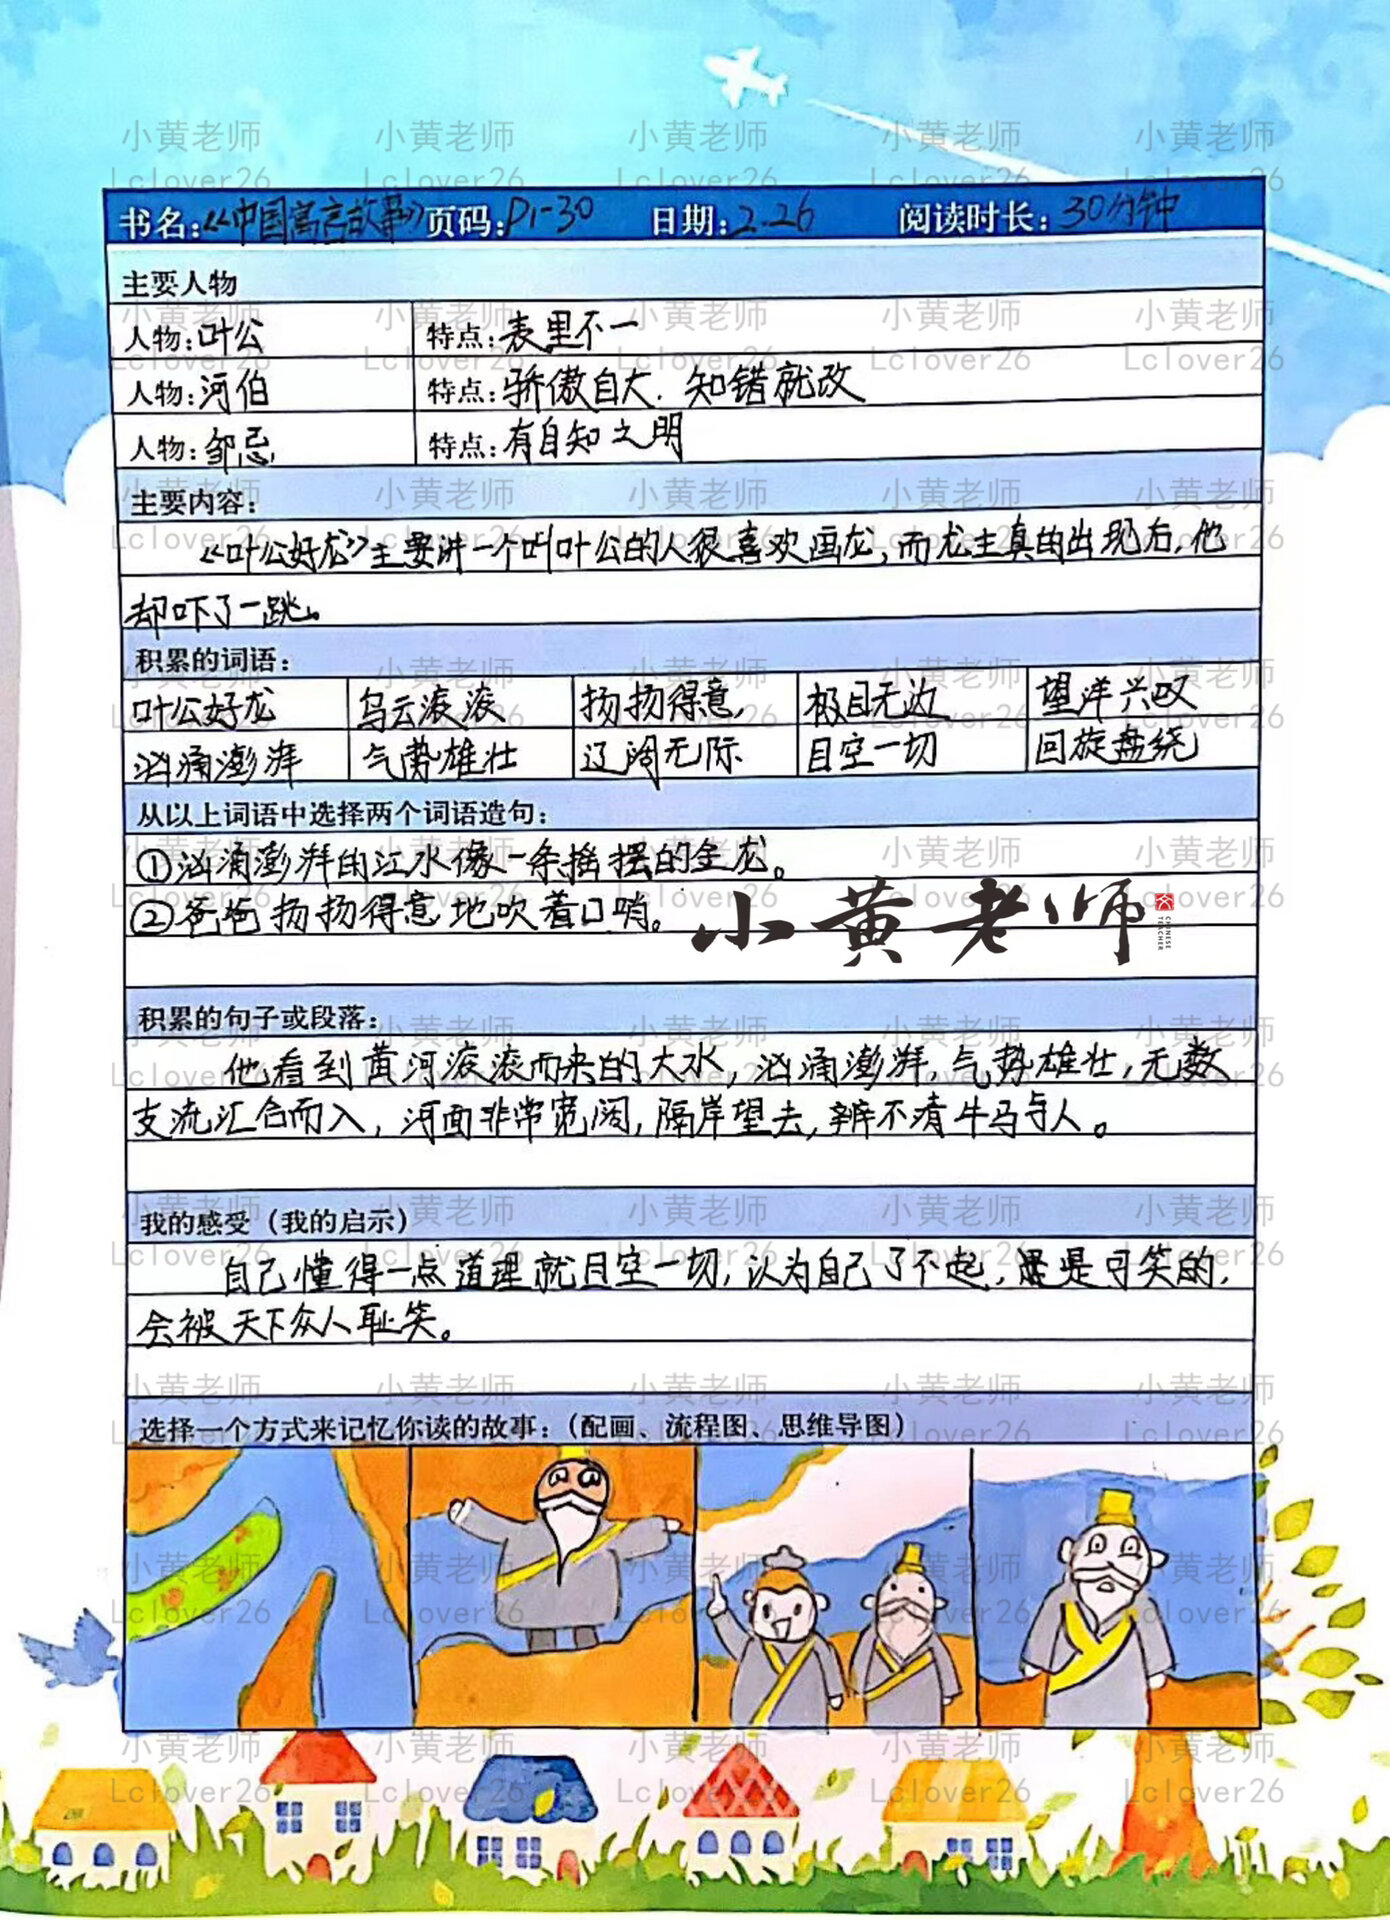 书名:《中国寓言故事》页码:P1-30 日期:2.26 阅读时长:30分钟
主要人物
人物:叶公 特点:表里不一
人物:河伯 特点:骄傲自大.知错就改
人物:邹忌 特点:有自知之明
主要内容:
《叶公好龙》主要讲一个叫叶公的人很喜欢画龙,而龙主真的出现后,他
却吓了一跳。
积累的词语:
叶公好龙 乌云滚滚 扬扬得意 极目无边 望洋兴叹
汹涌澎湃 气势雄壮 辽阔无际 目空一切 回旋盘绕
从以上词语中选择两个词语造句:
①汹涌澎湃的江水像一条摇摆的金龙。
②爸爸扬扬得意地吹着口哨。
小黄老师
CHINESE TEACHER
积累的句子或段落:
他看到黄河滚滚而来的大水,汹涌澎湃,气势雄壮,无数
支流汇合而入,河面非常宽阔,隔岸望去,辨不清牛马与人。
我的感受(我的启示)
自己懂得一点道理就目空一切,认为自己了不起,是可笑的,
会被天下众人耻笑。
选择一个方式来记忆你读的故事:(配画、流程图、思维导图)
小黄老师
Lclover26